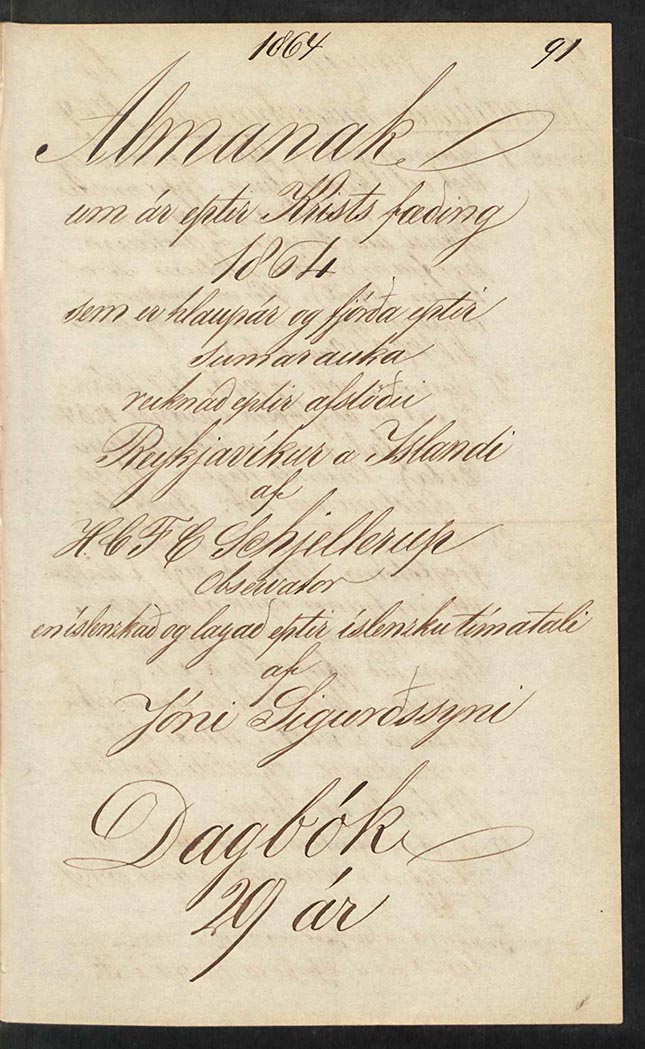 1864 91
Almanak
um ár eptir Krists fæðing
1864
sem er hlaupár og fjórða eptir
sumarauka
reiknað eptir afstöðu
Reykjavíkur a Islandi
af
H. C. F. C. Schjellerup
Observator
en íslenzkað og lagað eptir íslenzku tímatali
af
Jóni Sigurðssyni
Dagbók
29 ár